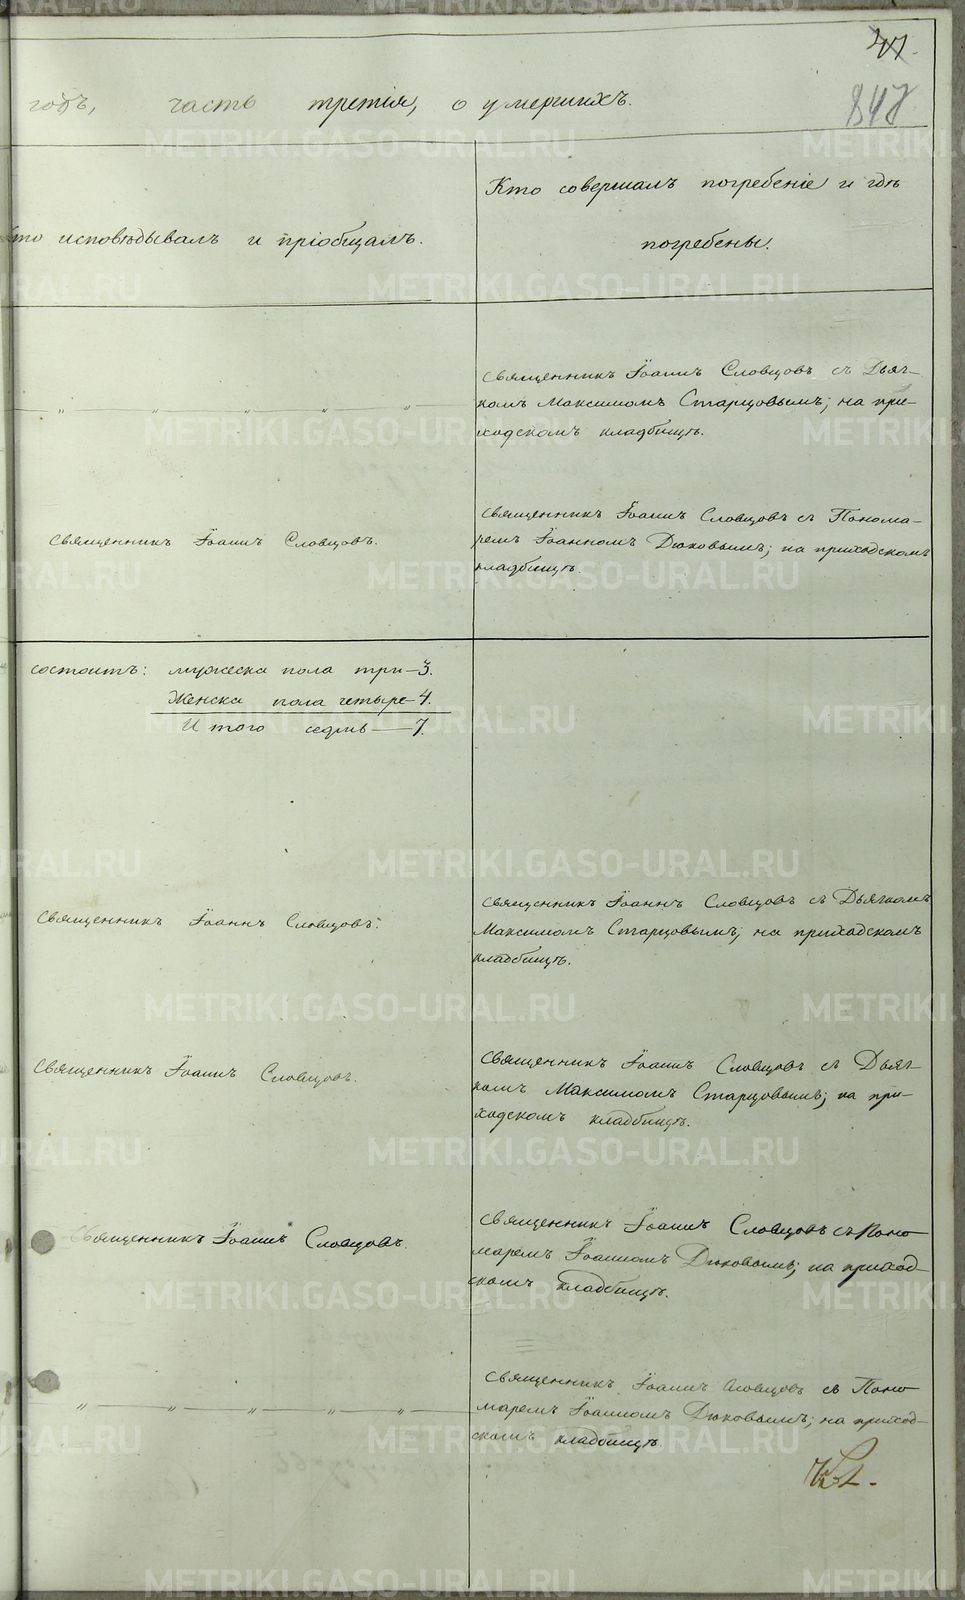 41.
годъ, часть третія, о умершихъ.
847
Кто исповѣдывалъ и пріобщалъ.
Кто совершалъ погребеніе и гдѣ
погребены.
Священникъ Іоаннъ Словцовъ съ Дьяч-
комъ Максимомъ Старцовымъ; на при-
ходскомъ кладбищѣ.
Священникъ Іоаннъ Словцовъ.
Священникъ Іоаннъ Словцовъ съ Понома-
ремъ Іоанномъ Дюковымъ; на приходскомъ
кладбищѣ.
состоитъ: мужеска пола три—3.
Женска пола четыре—4.
И того седмь—7.
Священникъ Іоаннъ Словцовъ.
Священникъ Іоаннъ Словцовъ съ Дьячкомъ
Максимомъ Старцовымъ; на приходскомъ
кладбищѣ.
Священникъ Іоаннъ Словцовъ.
Священникъ Іоаннъ Словцовъ съ Дьяч-
комъ Максимомъ Старцовымъ; на при-
ходскомъ кладбищѣ.
Священникъ Іоаннъ Словцовъ.
Священникъ Іоаннъ Словцовъ съ Поно-
маремъ Іоанномъ Дюковымъ; на приход-
скомъ кладбищѣ.
Священникъ Іоаннъ Словцовъ съ Поно-
маремъ Іоанномъ Дюковымъ; на приход-
скомъ кладбищѣ.
METRIKI.GASO-URAL.RU